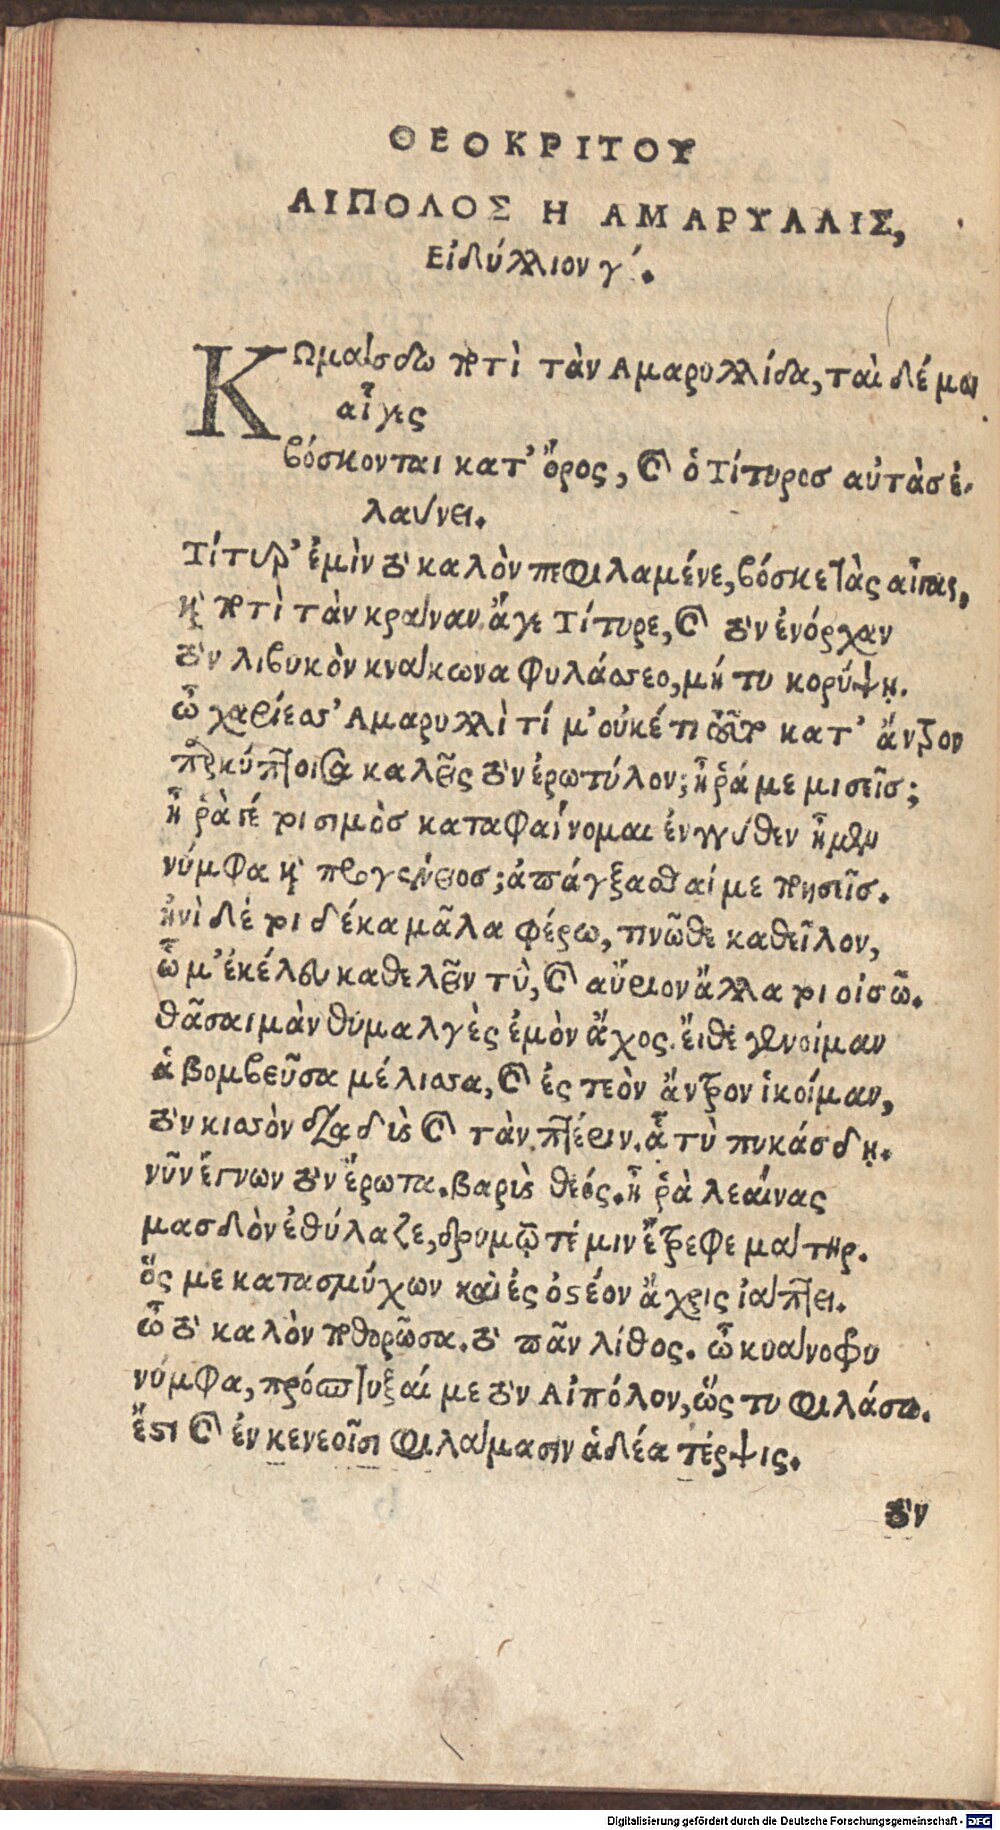 ΘΕΟΚΡΙΤΟΥ
ΑΙΠΟΛΟΣ Η ΑΜΑΡΥΛΛΙΣ,
Εἰδύλλιον γ΄.
ΚΩμαίσδω ποτὶ τὰν Αμαρυλλίδα, ταὶ δέ μοι
αἶγες
βόσκονται κατ' ὄρος, καὶ ὁ Τίτυρος αὐτὰς ἐ-
λαύνει.
Τίτυρ' ἐμὶν τὸ καλὸν πεφιλαμένε, βόσκε τὰς αἶγας,
καὶ ποτὶ τὰν κράναν ἄγε Τίτυρε, καὶ τὸν ἐνόρχαν
τὸν λιβυκὸν κνάκωνα φυλάσσεο, μή τυ κορύψῃ.
ὦ χαρίεσσ' Αμαρυλλὶ τί μ' οὐκέτι τοῦτο κατ' ἄντρον
παρκύπτοισα καλεῖς τὸν ἐρωτύλον; ἦ ῥά με μισεῖς;
ἦ ῥά γέ τοι σιμὸς καταφαίνομαι ἐγγύθεν ἦμεν
νύμφα καὶ προγένειος; ἀπάγξασθαί με ποησεῖς.
ἠνὶ δέ τοι δέκα μᾶλα φέρω, τηνῶθε καθεῖλον,
ὧ μ' ἐκέλευ καθελεῖν τὺ, καὶ αὔριον ἄλλα τοι οἰσῶ.
θᾶσαι μὰν θυμαλγὲς ἐμὸν ἄχος. ἔιθε γενοίμαν
ἁ βομβεῦσα μέλισσα, καὶ ἐς τεὸν ἄντρον ἱκοίμαν,
τὸν κισσὸν διαδὺς καὶ τὰν πτέριν. ἇ τὺ πυκάσδῃ.
νῦν ἔγνων τὸν ἔρωτα. βαρὺς θεός. ἦ ῥὰ λεαίνας
μασδὸν ἐθύλαζε, δρυμῷ τέ μιν ἔτρεφε μάτηρ.
ὅς με κατασμύχων καὶ ἐς ὀστέον ἄχρις ἰάπτει.
ὦ τὸ καλὸν ποθορῶσα. τὸ πᾶν λίθος. ὦ κυάνοφρυ
νύμφα, πρόσπτυξαί με τὸν Αἰπόλον, ὥς τυ φιλάσω.
ἔστι καὶ ἐν κενεοῖσι φιλάμασιν ἁδέα τέρψις.
τὸν
Digitalisierung gefördert durch die Deutsche Forschungsgemeinschaft - DFG